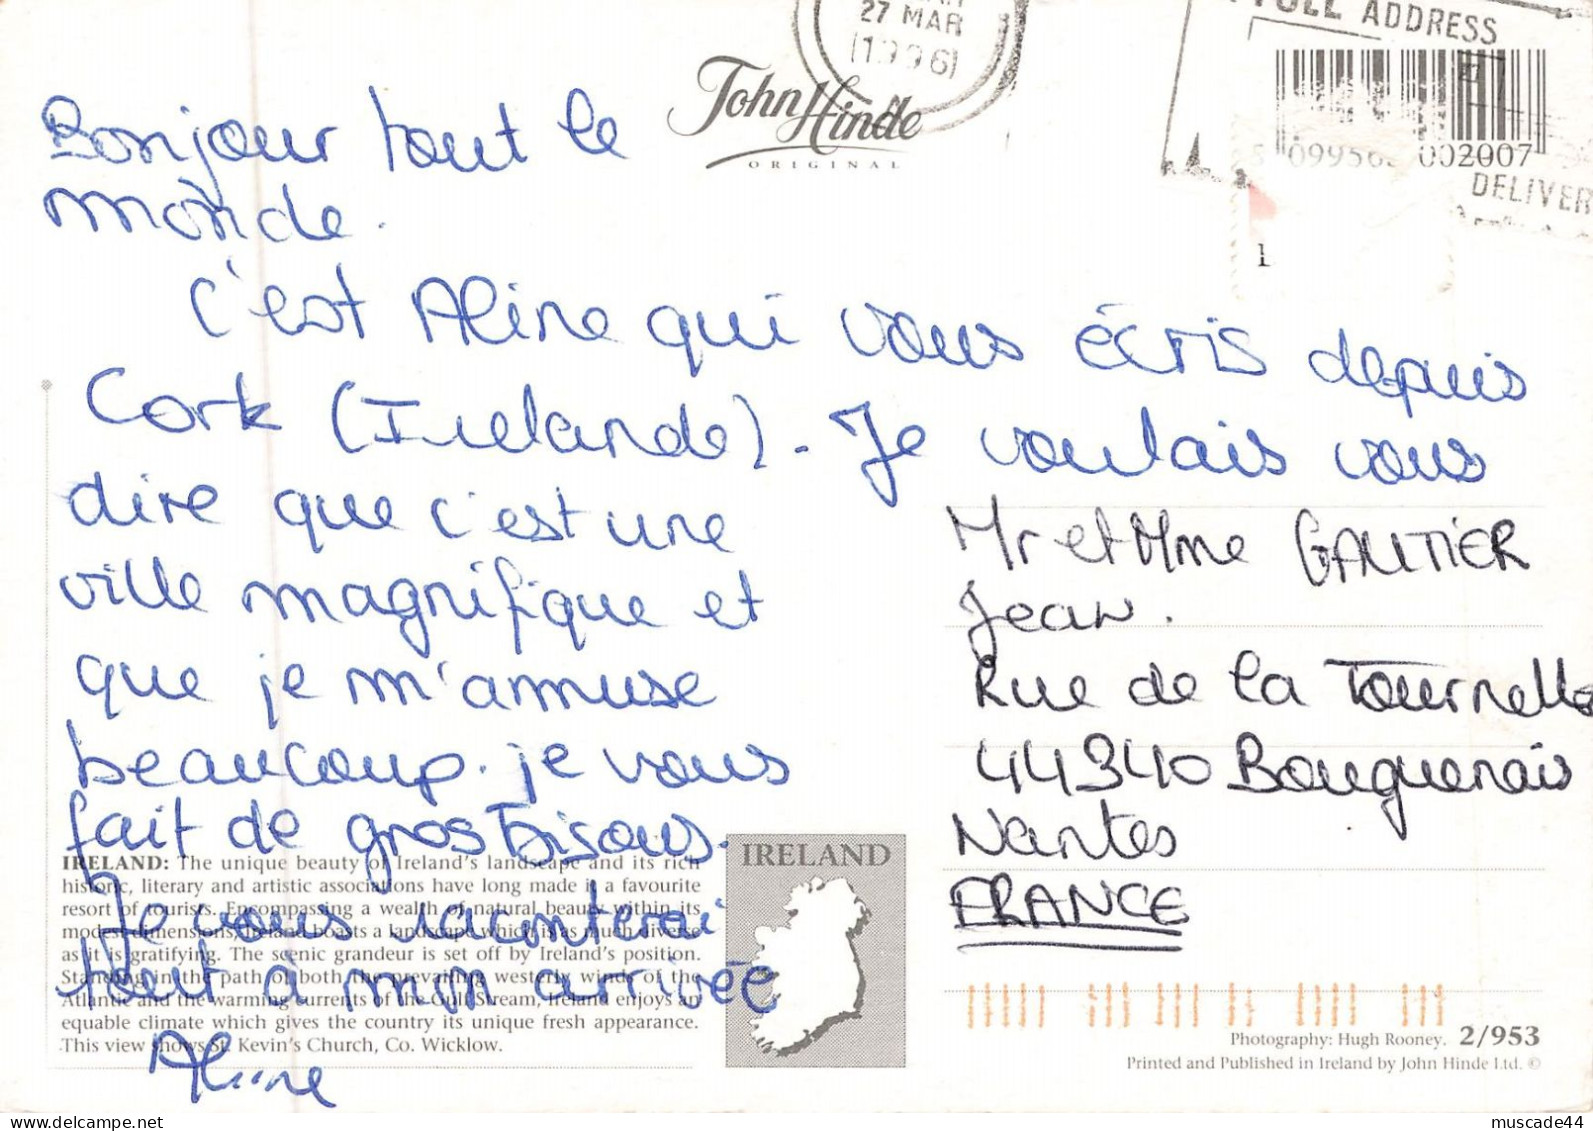 27 MAR
1996
FULL ADDRESS
DELIVER
John Hinde
ORIGINAL
002007
1
Bonjour tout le
monde.
C'est Aline qui vous écris depuis
Cork (Irelande). Je voulais vous
dire que c'est une
ville magnifique et
que je m'amuse
beaucoup. je vous
fait de gros bisous.
Je vous raconterai
tout à mon arrivée
Aline
Mr et Mme GAUTIER
Jean.
Rue de la Tournelle
44340 Bouguenais
Nantes
FRANCE
IRELAND: The unique beauty of Ireland's landscape and its rich
historic, literary and artistic associations have long made it a favourite
resort of tourists. Encompassing a wealth of natural beauty within its
modest dimensions, Ireland boasts a landscape which is as much diverse
as it is gratifying. The scenic grandeur is set off by Ireland's position.
Standing in the path of both the prevailing westerly winds of the
Atlantic and the warming currents of the Gulf Stream, Ireland enjoys an
equable climate which gives the country its unique fresh appearance.
This view shows St. Kevin's Church, Co. Wicklow.
IRELAND
Photography: Hugh Rooney. 2/953
Printed and Published in Ireland by John Hinde Ltd. ©
muscade44